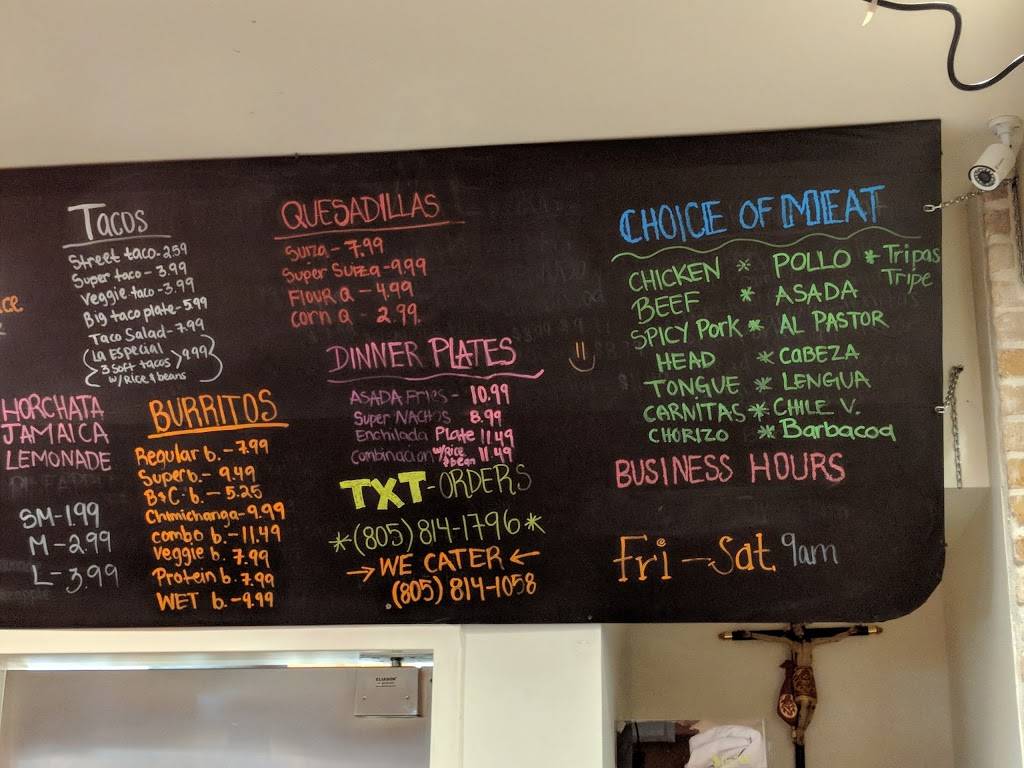 TACOS
Street taco-2.59
Super taco-3.99
Veggie taco-3.99
Big taco plate-5.99
Taco Salad-7.99
La Especial
3 Soft tacos 9.99
w/Rice & beans
HORCHATA
JAMAICA
LEMONADE
SM-1.99
M-2.99
L-3.99
BURRITOS
Regular b.-7.99
Super b.-9.49
B&C b.-5.25
Chimichanga-9.99
combo b.-11.49
Veggie b. 7.99
Protein b. 7.99
WET b.-9.99
QUESADILLAS
Suiza-7.99
Super Suiza-9.99
FLOUR Q-4.99
Corn Q-2.99.
DINNER PLATES
ASADA Fries-10.99
Super NACHOS 8.99
Enchilada Plate 11.49
Combinacion w/rice & bean 11.49
TXT-ORDERS
*(805)814-1796*
→WE CATER←
(805)814-1058
CHOICE OF MEAT
CHICKEN * POLLO *Tripas
Tripe
BEEF * ASADA
SPICY Pork * AL PASTOR
HEAD * CABEZA
TONGUE * LENGUA
CARNITAS * CHILE V.
CHORIZO * Barbacoa
BUSINESS HOURS
Fri-Sat 9am